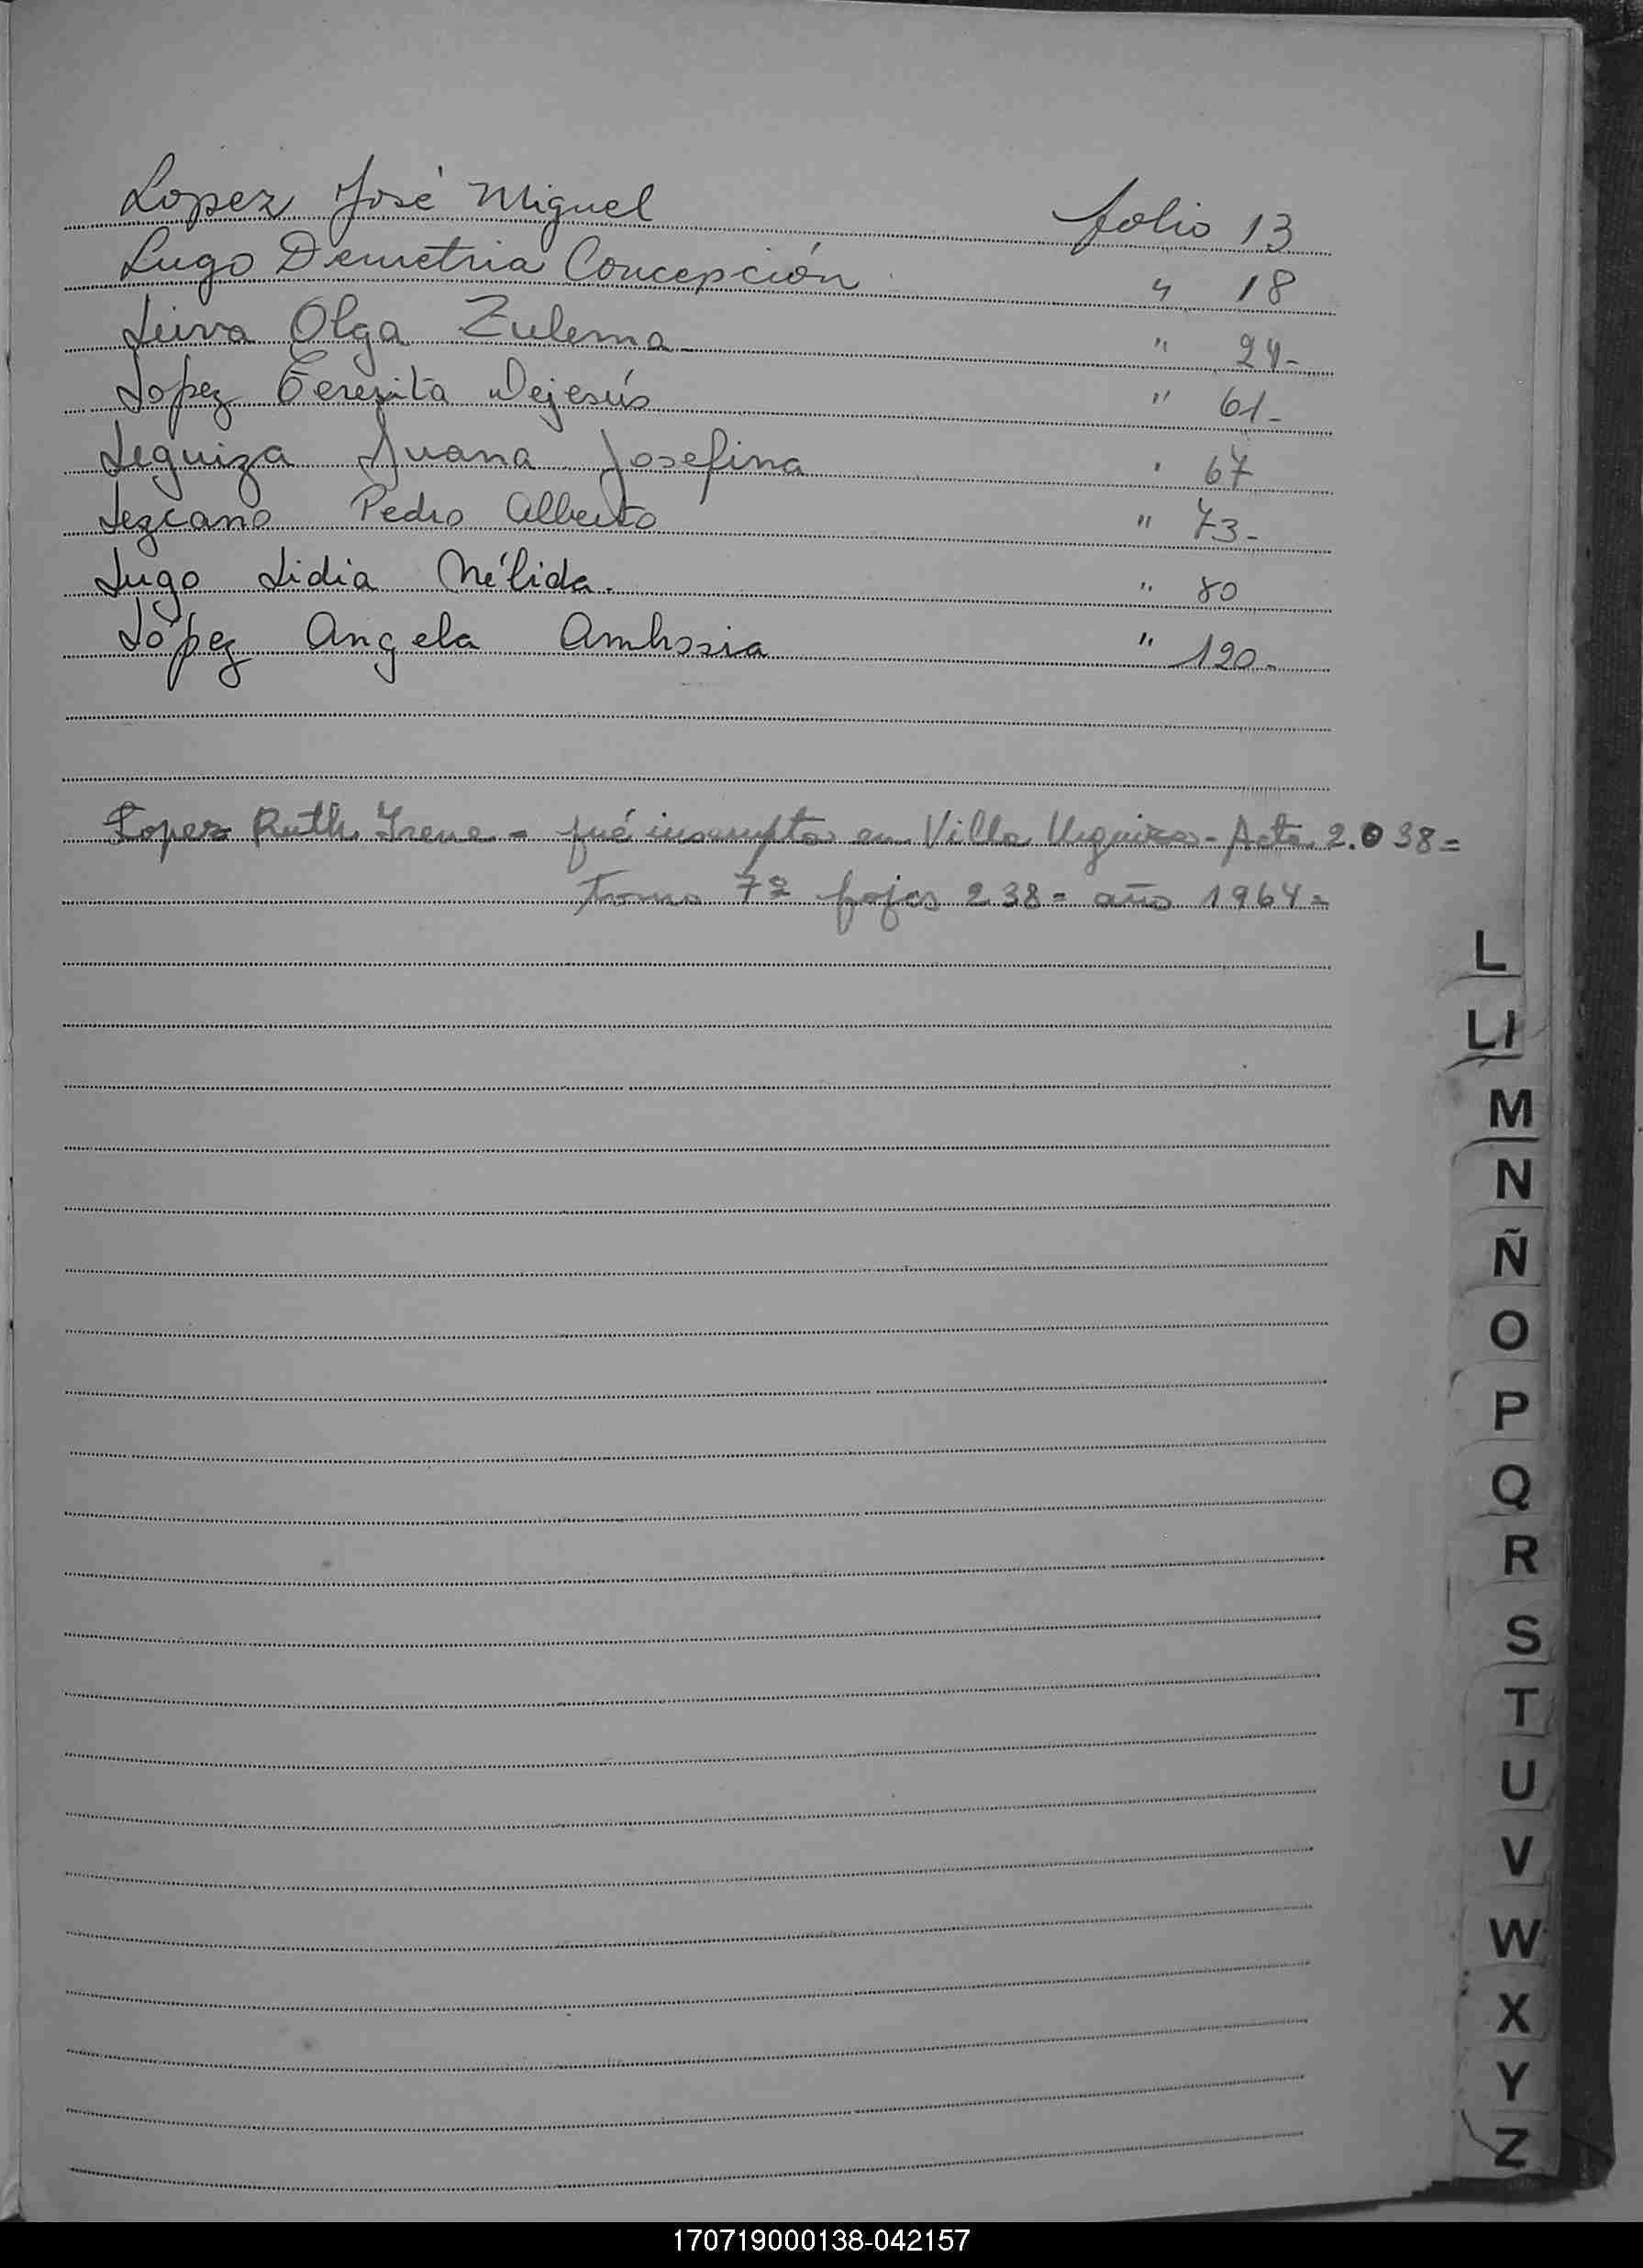 Lopez José Miguel folio 13
Lugo Demetria Concepción " 18
Leiva Olga Zulema " 24-
Lopez Terezita Dejesús " 61-
Leguiza Juana Josefina " 67
Lezcano Pedro Alberto " 73-
Lugo Lidia Nélida. " 80
López Angela Ambrosia " 120-
Lopez Ruth Irene - fué inscripta en Villa Urquiza - Acta 2.038=
tomo 7º fojas 238= año 1964=
L
Ll
M
N
Ñ
O
P
Q
R
S
T
U
V
W
X
Y
Z
170719000138-042157